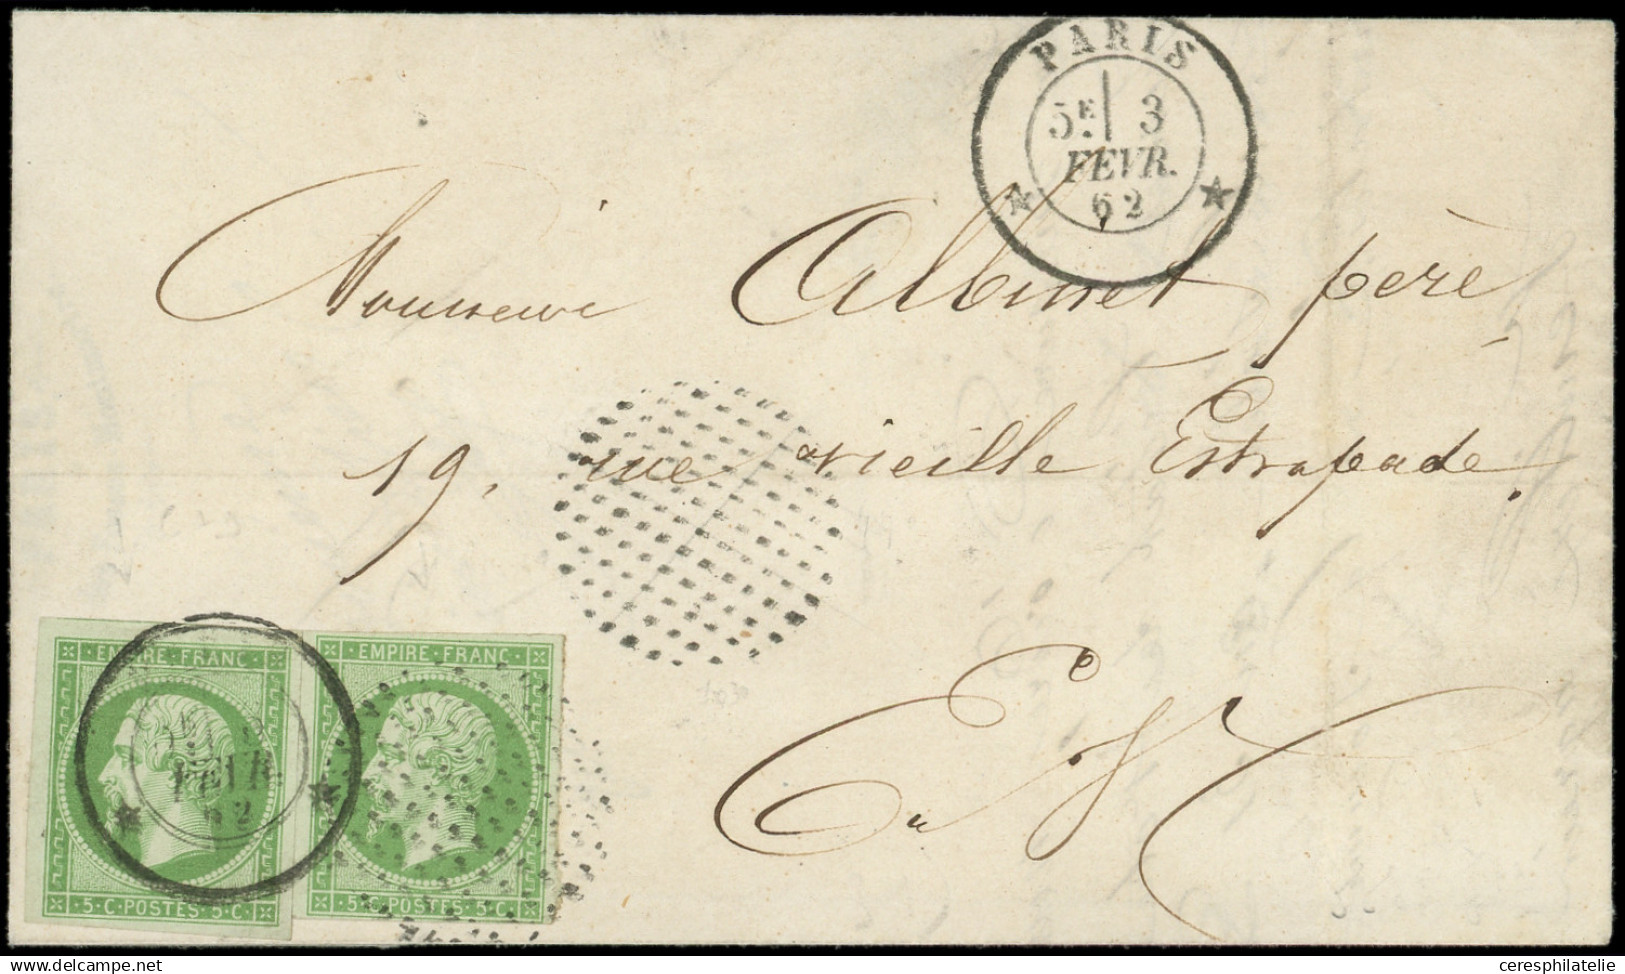 PARIS
5E 3
FEVR.
62
Monsieur Albinet père
19, rue vieille Estrapade.
E V
EMPIRE·FRANC· EMPIRE·FRANC·
FEVR.
62
·5·C·POSTES·5·C· ·5·C·POSTES·5·C·
www.delcampe.net ceresphilatelie